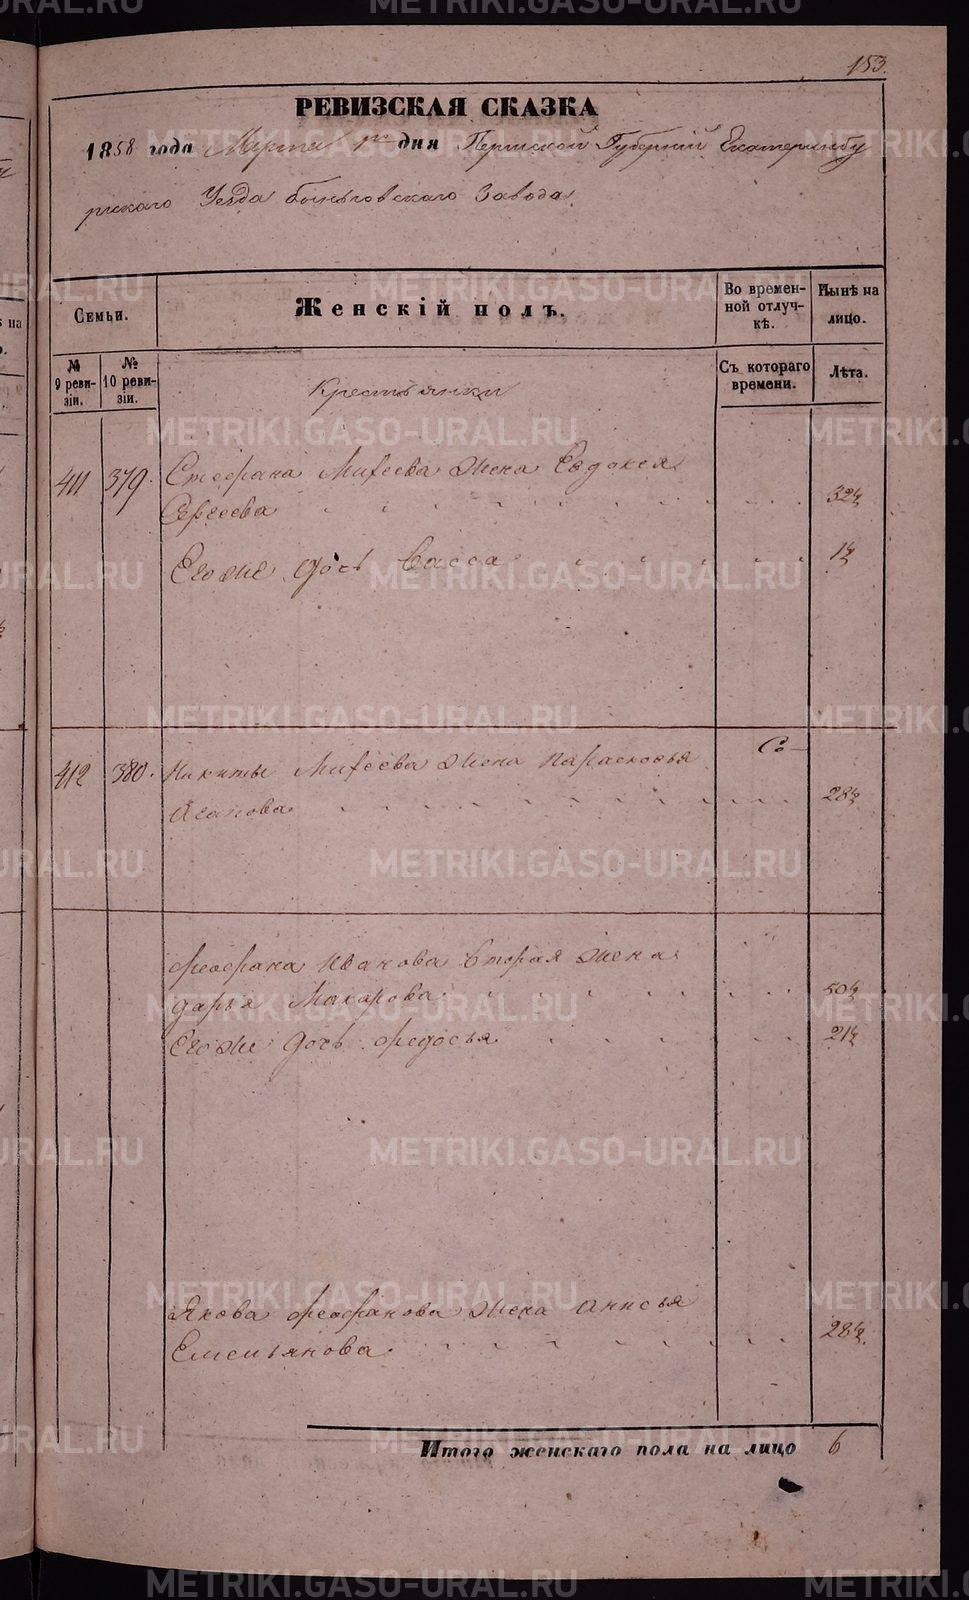 153.
РЕВИЗСКАЯ СКАЗКА
1858 года Марта 1го дня Пермской Губерній Екатеринбу
ргскаго Уезда бынговскаго Завода
Семьи.
Женскій полъ.
Во времен-
ной отлуч-
кѣ.
Нынѣ на
лицо.
№
9 реви-
зіи.
№
10 реви-
зіи.
Съ котораго
времени.
Лѣта.
Крестьянки
411 379. Стефана Михеева жена Евдокея
Сергеева 32
Его же дочь Васса 1
412 380. Никиты Михеева жена Парасковья
Агапова 28
феофана Иванова вторая жена
дарья Макарова 50
Его же дочь федосья 21
Якова феофанова жена анисья
Емельянова 28
Итого женскаго пола на лицо 6
METRIKI.GASO-URAL.RU